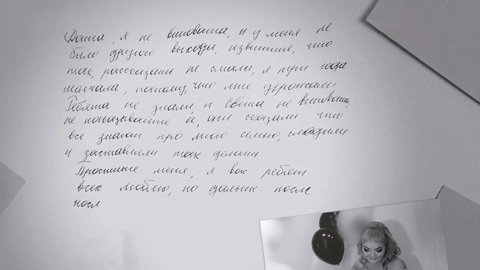 Даша, я не виновата, и у меня не
было другого выхода, извините, что
так, рассказать не смогла, я три года
молчала, потому, что мне угрожали
Ребята не знали, и Света не виновата,
не наказывайте её, они сказали что
все знают про мою семью, следили
и заставляли так делать
Простите меня, я вас ребят
всех люблю, но дальше после